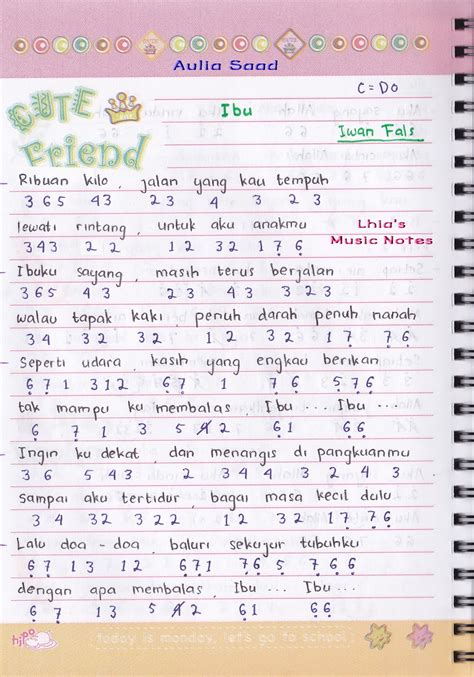 Aulia Saad
C = Do
CUTE Friend
Ibu
Iwan Fals
Ribuan kilo, jalan yang kau tempuh
3 6 5 43 23 4 3 23
lewati rintang, untuk aku anakmu
343 22 12 32 1 7 6
Lhia's
Music Notes
Ibuku sayang, masih terus berjalan
365 43 23 43 323
walau tapak kaki penuh darah penuh nanah
34 32 32 12 32 17 76
Seperti udara, kasih yang engkau berikan
671 312 67 1 76 576
tak mampu ku membalas Ibu ... Ibu ...
6 7 1 3 5 4 2 61 66
Ingin ku dekat dan menangis di pangkuanmu
3 6 5 43 2 344 3 2 4 3
Sampai aku tertidur, bagai masa kecil dulu
34 32 322 12 32 17 76
Lalu doa - doa, baluri sekujur tubuhku
67 13 12 671 765 766
dengan apa membalas, Ibu ... Ibu ...
6 1 13 5 4 2 61 66
hipo
today is monday, let's go to school